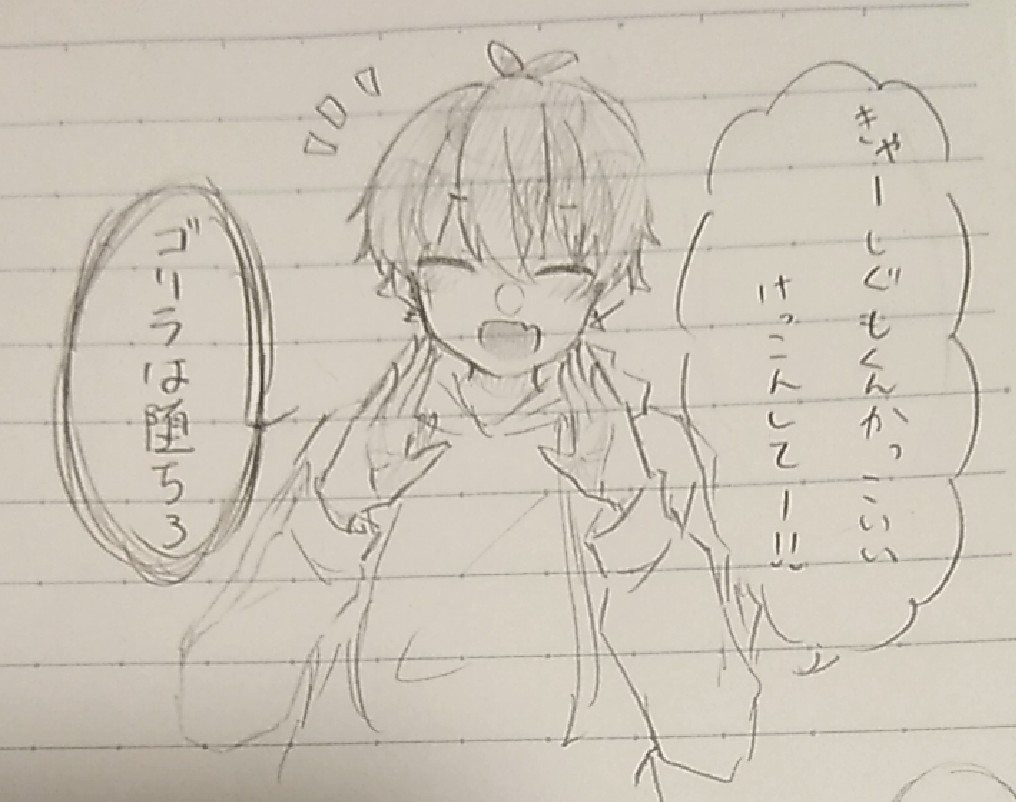 きゃーしぐもくんかっこいい
けっこんしてー!!
ゴリラは堕ちろ